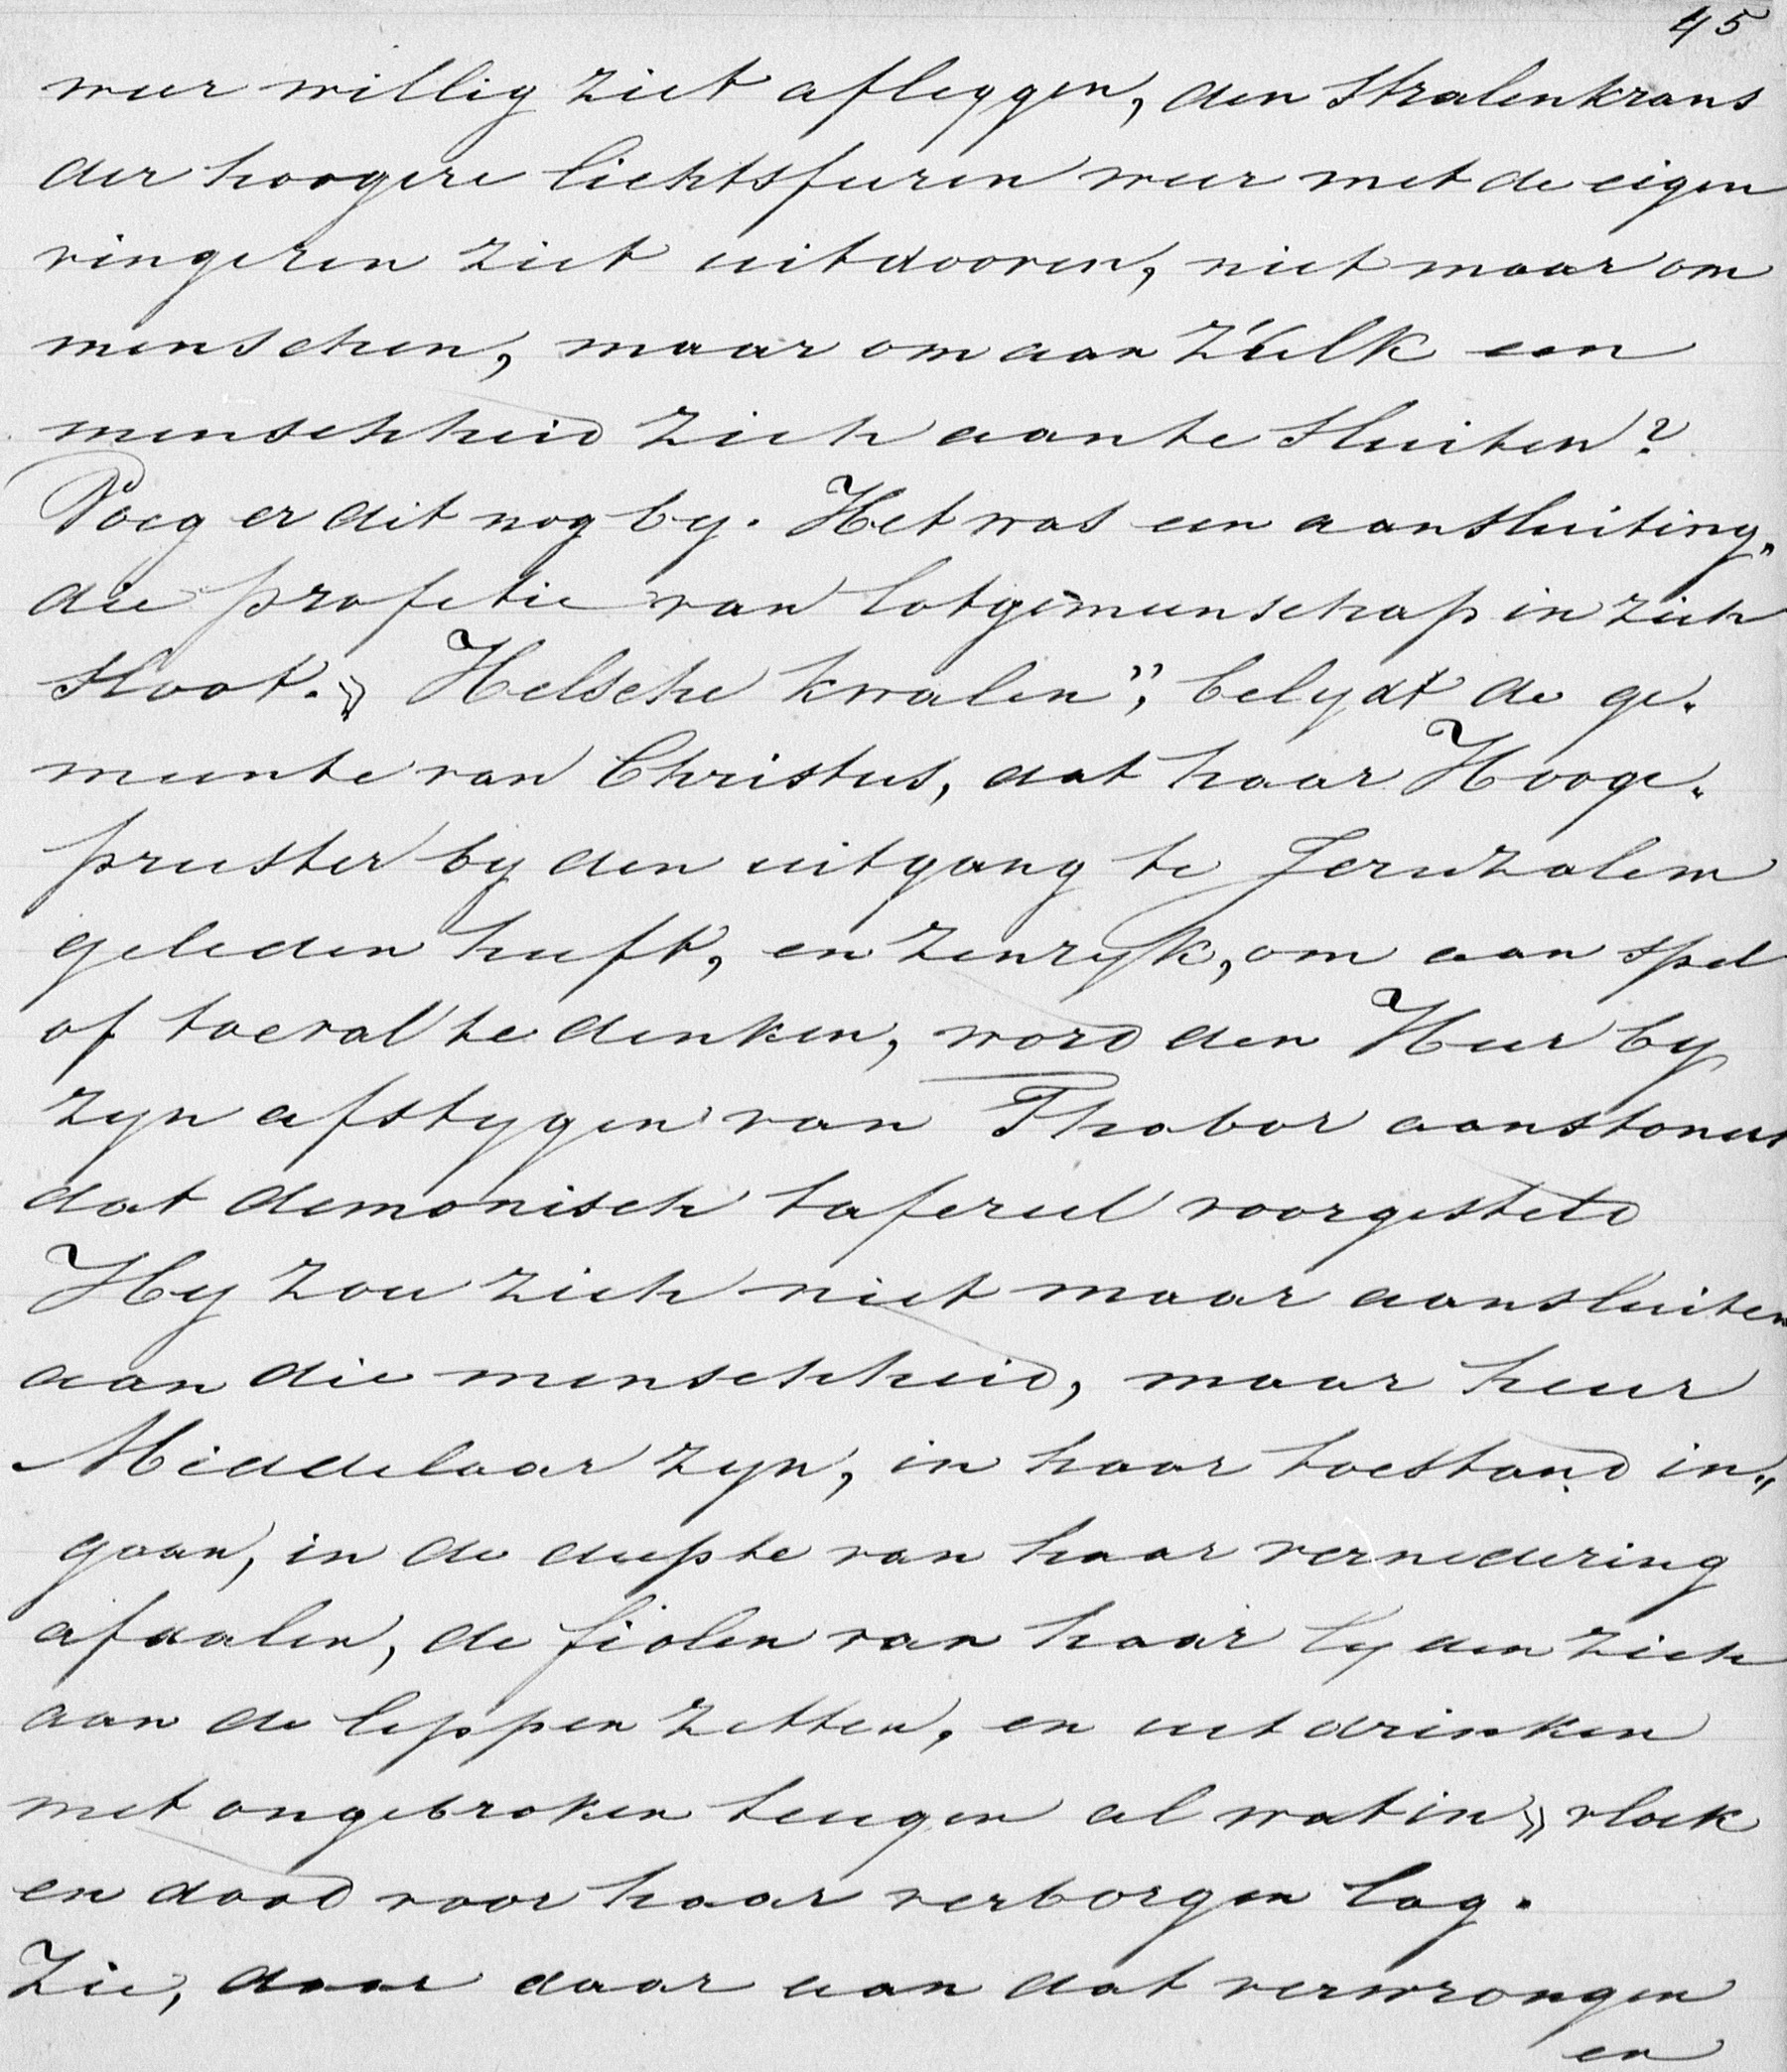 45
weer willig ziet afleggen, den stralenkrans
der hoogere lichtsferen weer met de eigen
vingeren ziet uitdooven, niet maar om
menschen, maar om aan zúlk een
menschheid zich aan te sluiten?
Voeg er dit nog by. Het was een aansluiting„
die profetie van lotgemeenschap in zich
sloot. „Helsche kwalen”, belydt de ge„
meente van Christus, dat haar Hooge„
priester by den uitgang te Jeruzalem
geleden heeft, en zenryk, om aan spel
of toeval te denken, word den Heer by
zyn afstygen van Thabor aanstonds
dat demonisch tafereel voorgesteld
Hy zou zich niet maar aansluiten
aan die menschheid, maar heur
Middelaar zyn, in haar toestand in„
gaan, in de diepte van haar vernedering
afdalen, de fiolen van haar lyden zich
aan de lippen zetten, en uitdrinken
met ongebroken teugen al wat in „vloek
en dood voor haar verborgen lag.
Zie, daar daar aan dat verwrongen
en